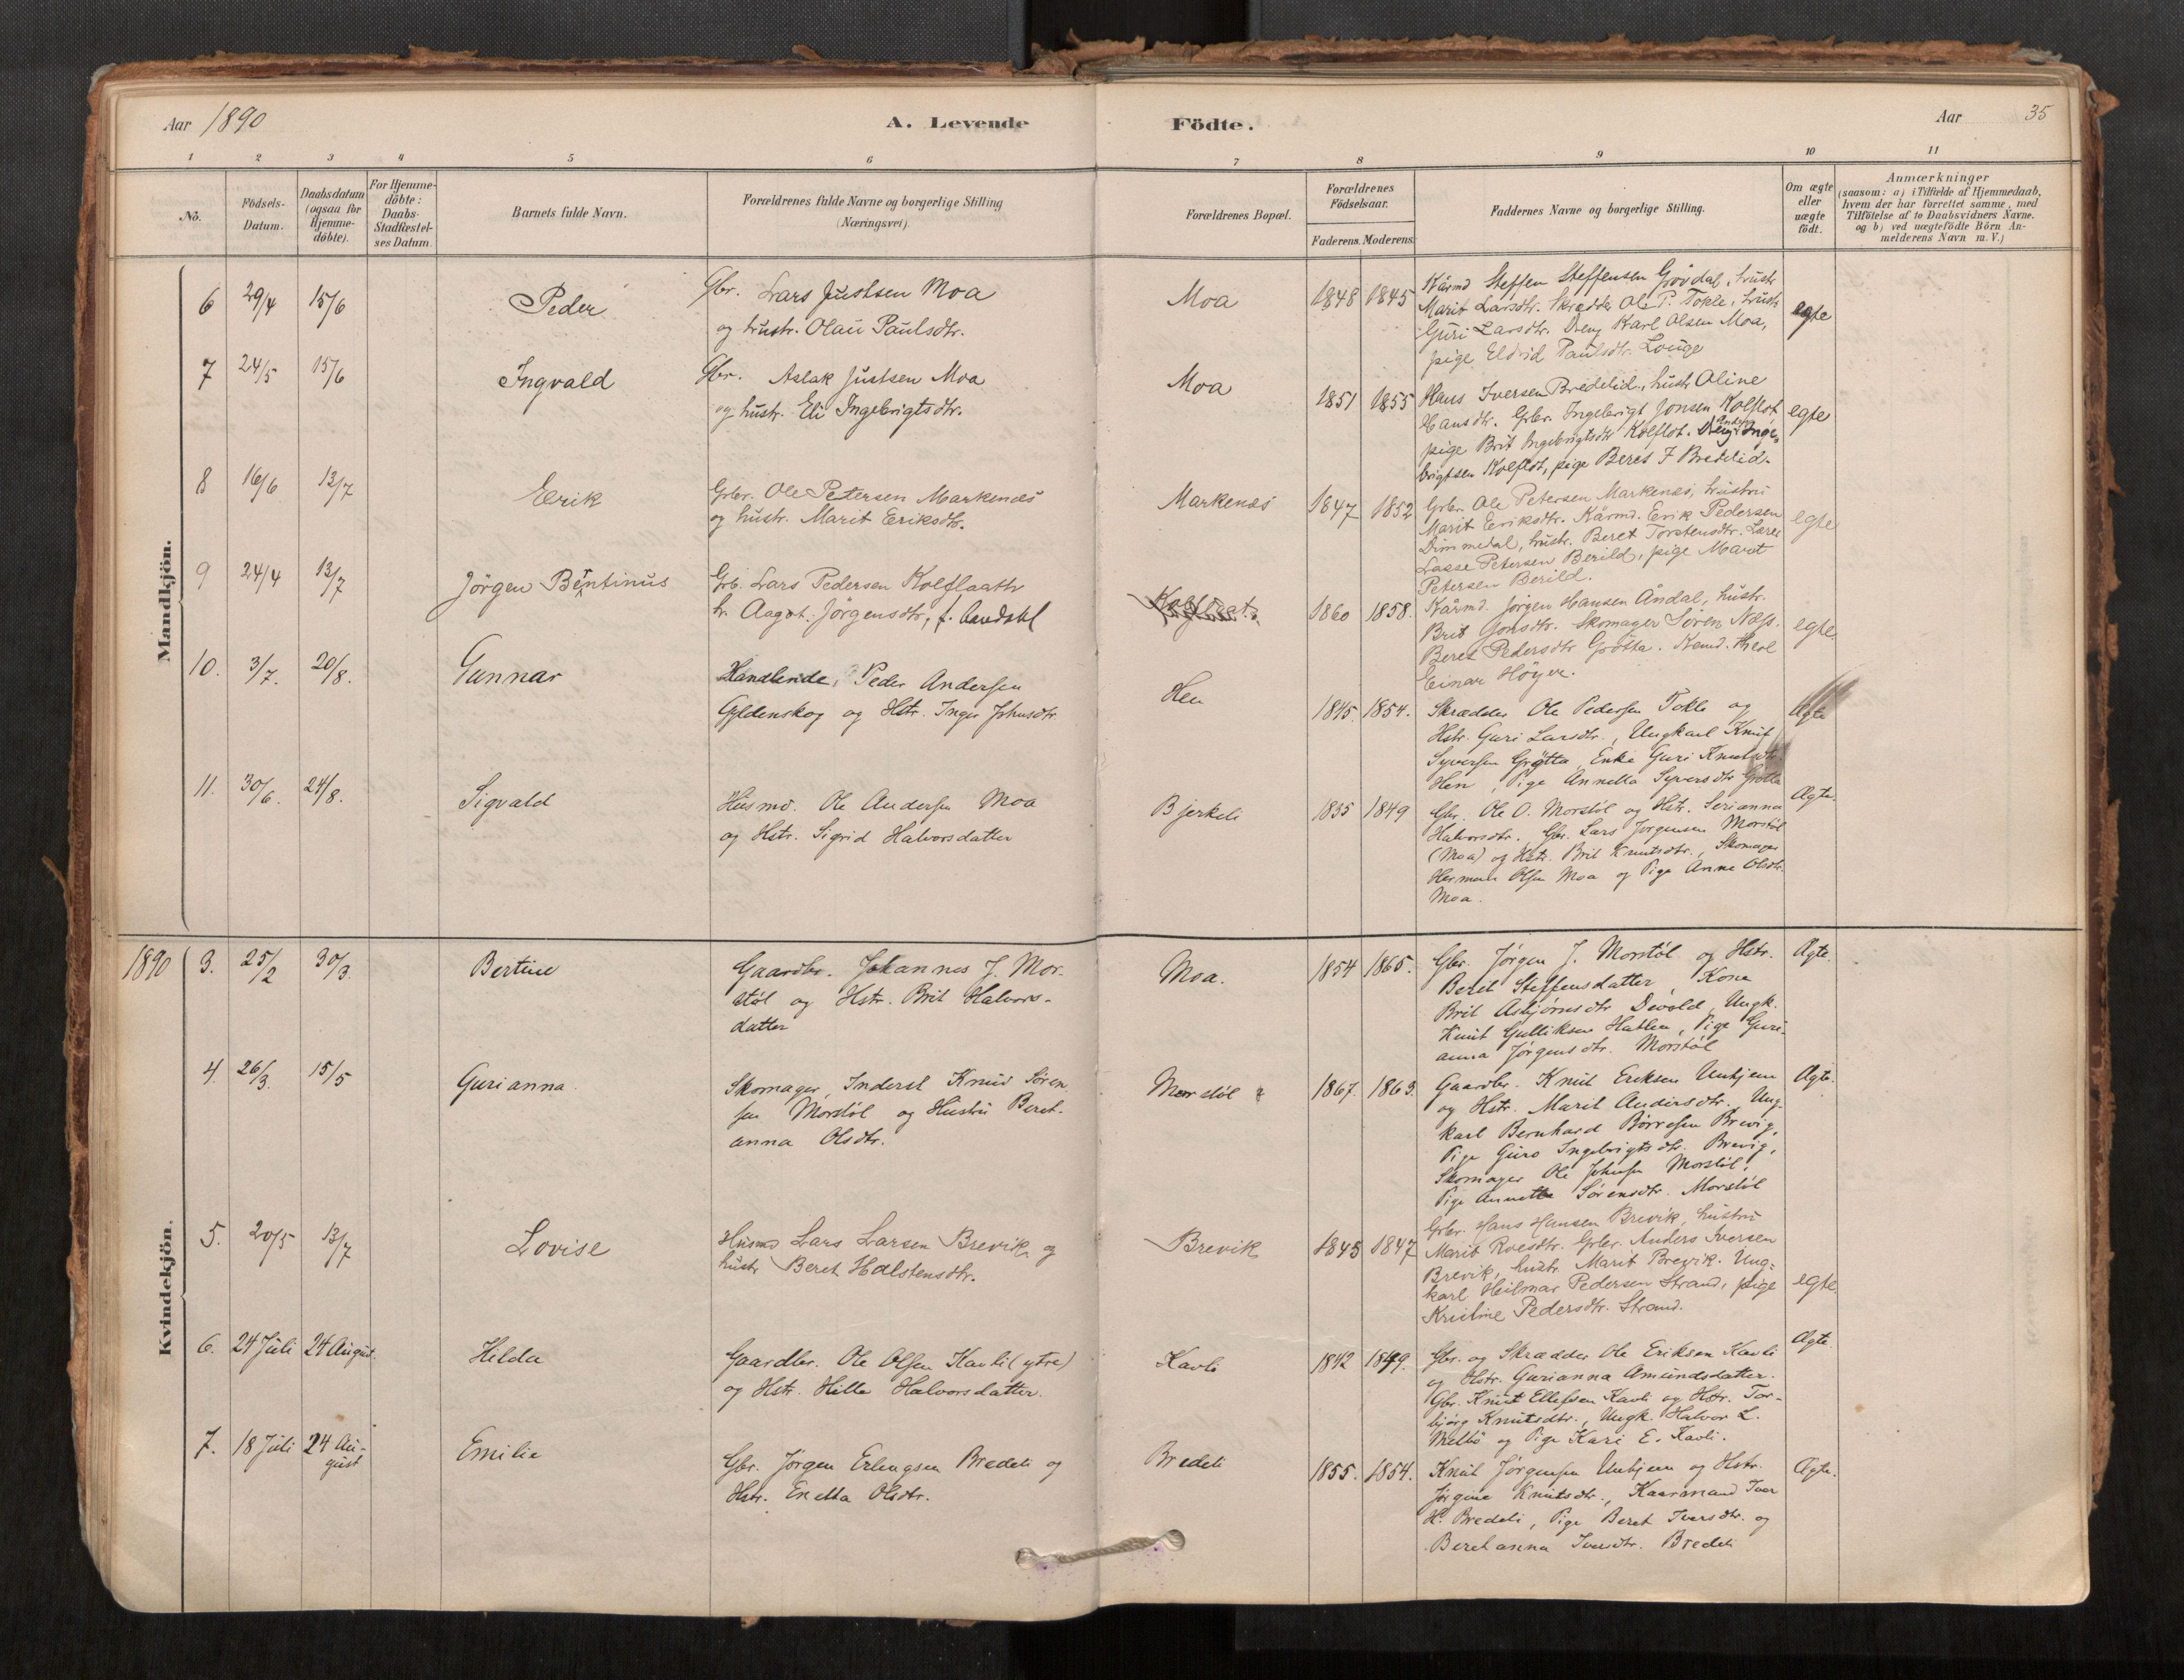 Aar 1890
A. Levende
Födte.
Aar
35
1 2 3 4 5 6 7 8 9 10 11
No.
Födsels-
Datum.
Daabsdatum
(ogsaa for
Hjemme-
döbte).
For Hjemme-
döbte:
Daabs-
Stadfæstel-
ses Datum.
Barnets fulde Navn.
Forældrenes fulde Navne og borgerlige Stilling
(Næringsvei).
Forældrenes Bopæl.
Forældrenes
Födselsaar.
Faderens. Moderens.
Faddernes Navne og borgerlige Stilling.
Om ægte
eller
uægte
födt.
Anmærkninger
(saasom: a) i Tilfælde af Hjemmedaab,
hvem der har forrettet samme, med
Tilföielse af to Daabsvidners Navne.
og b) ved uægtefödte Börn An-
melderens Navn m.V.)
Mandkjön.
6 29/4 15/6 Peder
Gbr. Lars Justsen Moa
og hustr. Olau Paulsdtr.
Moa 1848 1845
Kårmd Steffen Steffensen Grövdal, hustr
Marit Larsdtr. Skrædder Ole P. Tokle, hustr
Guri Larsdtr. Dreng Karl Olsen Moa,
pige Eldrid Paulsdtr. Louge
egte
7 24/5 15/6 Ingvald
Gbr. Aslak Justsen Moa
og hustr. Eli Ingebrigtsdtr.
Moa 1851 1855
Hans Iversen Bredelid, hustr Oline
Hansdtr. Grbr. Ingebrigt Jonsen Kolflot
pige Brit Ingebrigtsdtr Kolflot. Dreng Anders Inge-
brigtsen Kolflot, pige Beret I Bredelid.
egte
8 16/6 13/7 Erik
Grbr. Ole Petersen Markenæs
og hustr. Marit Eriksdtr.
Markenæs 1847 1852
Grbr. Ole Petersen Markenæs, hustru
Marit Eriksdtr. Kårmd. Erik Pedersen
Dimmedal, hustr. Beret Torstensdtr. Lærer
Lasse Petersen Berild, pige Marit
Petersen Berild.
egte
9 24/4 13/7 Jörgen Berntinus
Grb. Lars Pedersen Kolflaath
h. Aagot Jörgensdtr, f. Aandahl
Kolflaat 1860 1858.
Kårmd. Jörgen Hansen Åndal, hustr.
Brit Jonsdtr. Skomager Sören Næss.
Beret Pedersdtr Grötta. Kand. theol
Einar Höyer.
egte.
10. 3/7. 20/8. Gunnar
Handlende, Peder Andersen
Gyldenskog og Hstr. Inger Johnsdtr
Hen 1845. 1854.
Skrædder Ole Pedersen Tokle og
Hstr. Guri Larsdtr., Ungkarl Knut
Syversen Grötta, Enke Guri Knutsdtr.
Hen, Pige Annetta Syversdtr Grötta
Ægte
11. 30/6. 24/8. Sigvald
Husmd. Ole Andersen Moa
og Hstr. Sigrid Halvorsdatter
Bjerkeli 1835 1849
Gbr. Ole O. Morstöl og Hstr. Serianna
Halvorsdtr. Gbr. Lars Jörgensen Morstöl
(Moa) og Hstr. Brit Knutsdtr., Skomager
Herman Olsen Moa og Pige Anne Olsdtr.
Moa.
Ægte.
Kvindekjön.
1890 3. 25/2 30/3. Bertine
Gaardbr. Johannes J. Mor-
stöl og Hstr. Brit Halvors-
datter
Moa. 1854 1865.
Gbr. Jörgen J. Morstöl og Hstr.
Beret Steffensdatter, Kona
Brit Asbjörnsdtr Devold, Ungk.
Knut Gulliksen Hatlen, Pige Guri-
anna Jörgensdtr. Morstöl
Ægte.
4. 26/3. 15/5 Gurianna
Skomager, Inderst Knud Sören-
sen Morstöl og Hustru Beret-
anna Olsdtr.
Morstöl 1867. 1863.
Gaardbr. Knut Eriksen Unhjem
og Hstr. Marit Andersdtr. Ung-
karl Bernhard Börresen Brevig,
Pige Guro Ingebrigtsdtr. Brevig,
Skomager Ole Johnsen Morstöl,
Pige Annette Sörensdtr. Morstöl
Ægte.
5. 20/5 13/7 Lovise
Husmd Lars Larsen Brevik og
hustr Beret Halstensdtr.
Brevik 1845 1847
Grbr. Hans Hansen Brevik, hustru
Marit Roesdtr. Grbr. Anders Iversen
Brevik, hustr. Marit Brevik. Ung-
karl Hilmar Pedersen Strand, pige
Kristine Pedersdtr. Strand.
egte.
6. 24 Juli 24 August. Hilda
Gaardbr. Ole Olsen Kavli (ytre)
og Hstr. Hilla Halvorsdatter.
Kavli 1842 1849.
Gbr. og Skrædder Ole Eriksen Kavli
og Hstr. Gurianna Amundsdatter.
Gbr. Knut Ellefsen Kavli og Hstr. Tor-
björg Knutsdtr., Ungk. Halvor L.
Melbö og Pige Kari E. Kavli.
Ægte.
7. 18 Juli 24 Au-
gust Emilie
Gbr. Jörgen Erlingsen Bredeli og
Hstr. Enetta Olsdtr.
Bredeli 1855. 1854.
Knut Jörgensen Unhjem og Hstr.
Jörgine Knutsdtr., Kaarmand Iver
H. Bredeli, Pige Beret Iversdtr. og
Beretanna Iversdtr. Bredeli
Ægte.